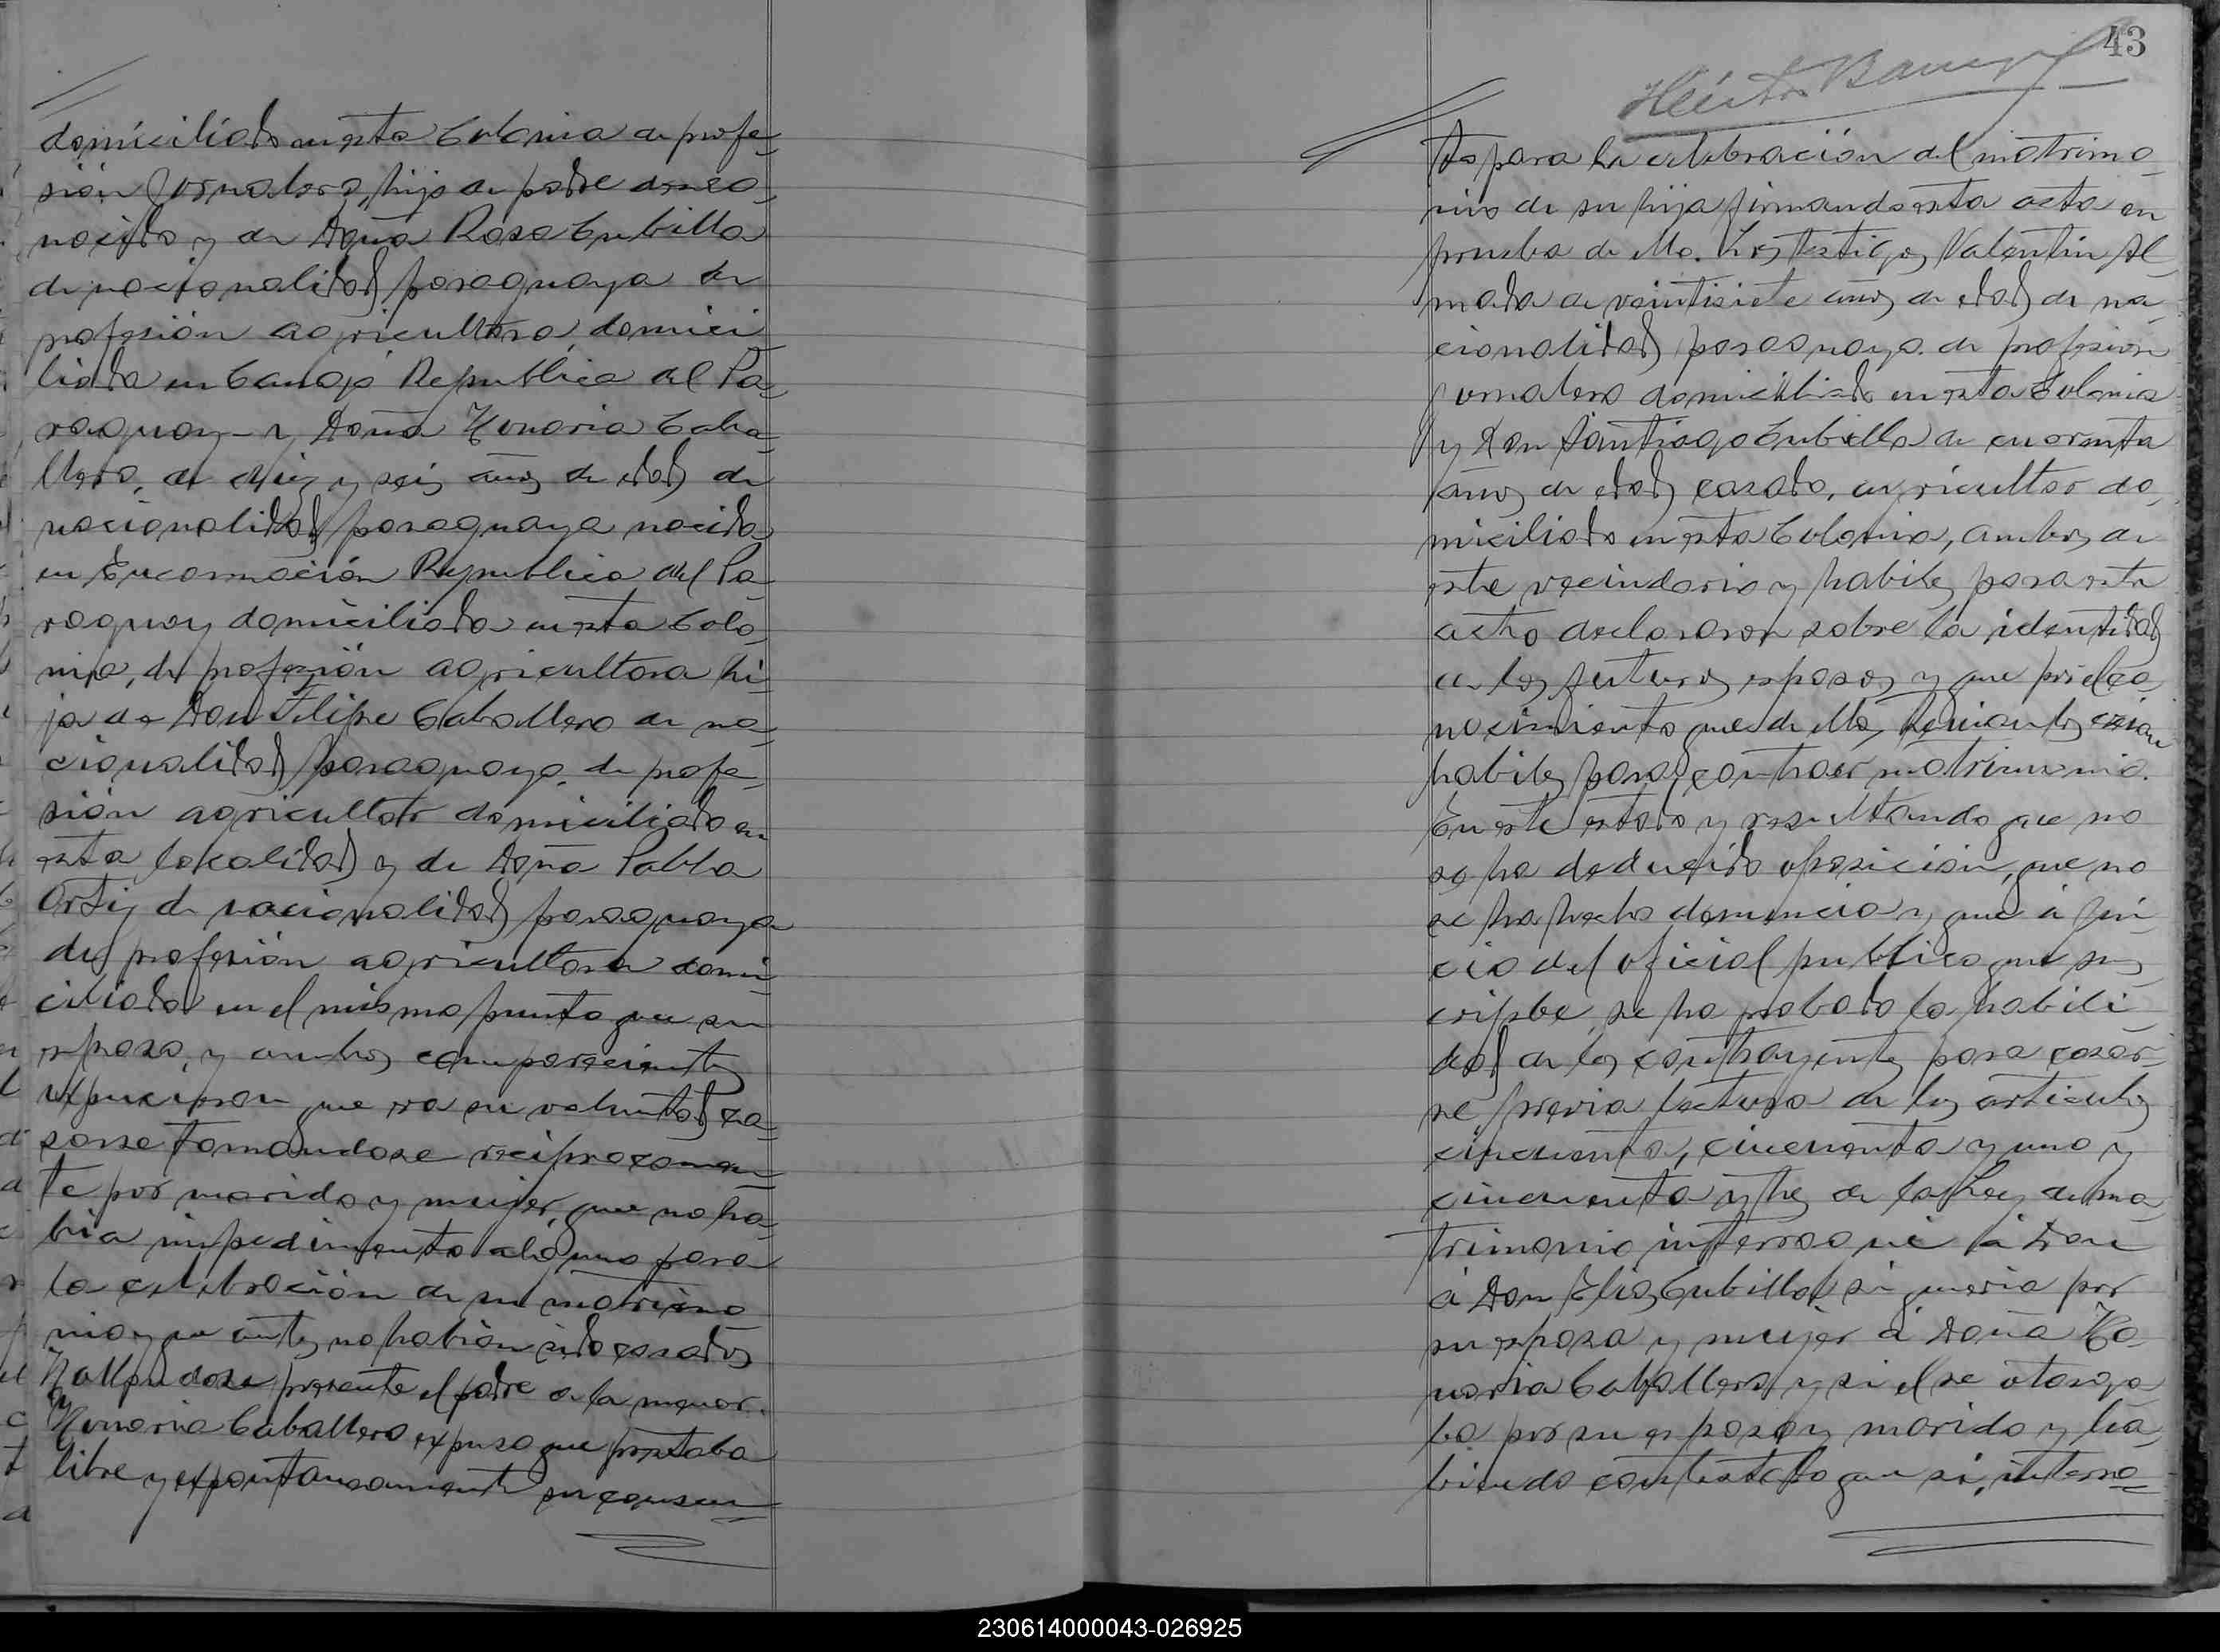 domiciliado en esta Colonia de profe-
sión jornalero, hijo de padre desco-
nocido y de Doña Rosa Cubilla
de nacionalidad paraguaya de
profesión agricultora, domici-
liada en Republica del Pa-
raguay - y Doña Honoria Caba-
llero, de diez y seis años de edad de
nacionalidad paraguaya nacida
en Encarnación Republica del Pa-
raguay domiciliada en esta Colo-
nia, de profesión agricultora hi-
ja de Don Felipe Caballero de na-
cionalidad paraguaya de profe-
sión agricultor domiciliado en
esta localidad y de Doña Pabla
Ortiz de nacionalidad paraguaya
de profesión agricultora domi-
ciliada en el mismo punto que su
esposo, y ambos comparecientes
expusieron que era su voluntad ca-
sarse tomandose reciprocamen-
te por marido y mujer, que no ha-
bia impedimento alguno para
la celebración de su matrimo
nio y que antes no habian sido casados
Hallandose presente el padre de la menor
Honoria Caballero expuso que prestaba
libre y expontaneamente su consen-
43
Héctor
to para la celebración del matrimo-
nio de su hija firmando esta acta en
prueba de ello. Los testigos Valentin Al-
mada de veintisiete años de edad de na-
cionalidad paraguaya de profesión
jornalero domiciliado en esta Colonia
y Don Santiago Cubilla de cuarenta
años de edad casado, agricultor do-
miciliado en esta Colonia, ambos de
este vecindario y habiles para este
acto declararon sobre la identidad
de los futuros esposos y que por el co-
nocimiento que de ellos tenian los creian
habiles para contraer matrimonio.
En este estado y resultando que no
se ha deducido oposicion, que no
se ha hecho denuncia y que á jui-
cio del oficial publico que sus-
cribe, se ha probado la habili-
dad de los contrayentes para casar-
se previa lectura de los articulos
cincuenta, cincuenta y uno y
cincuenta y tres de la Ley de ma-
trimonio interrogué á Don
á Don Elias Cubilla, si queria por
su esposa y mujer á Doña Ho-
noria Caballero y si el se otorga-
ba por su esposo y marido y ha-
biendo contestado que si, interro-
230614000043-026925